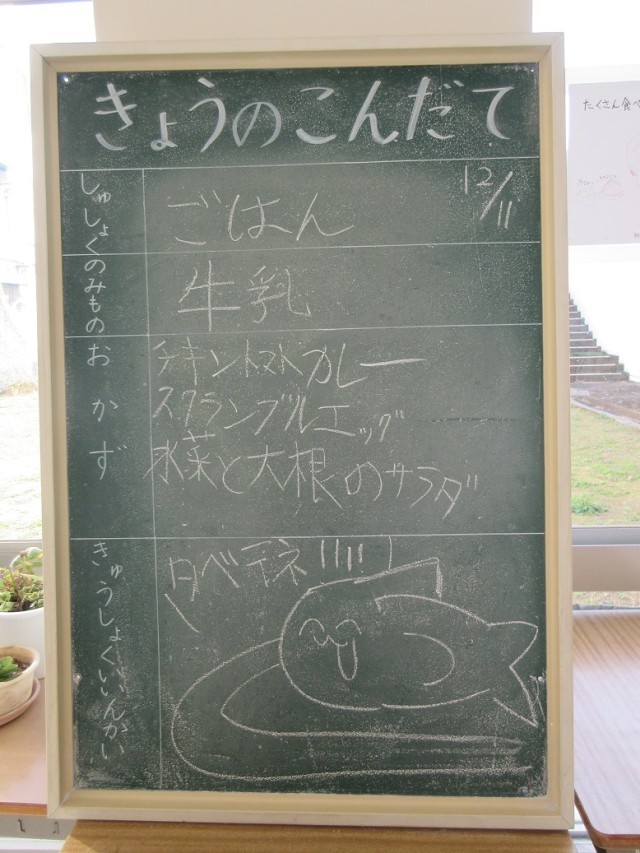 きょうのこんだて
12/11
しゅしょく
ごはん
のみもの
牛乳
おかず
チキントマトカレー
スクランブルエッグ
水菜と大根のサラダ
きゅうしょくいいんかい
タベテネ!!!!!
たくさん食べ